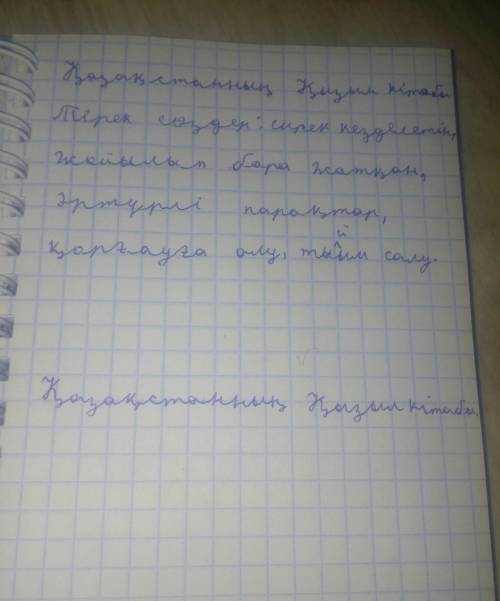 Қазақстанның Қызыл кітабы
Тірек сөздер: сирек кезделетін,
жойылып бара жатқан,
әртүрлі парақтар,
қорғауға алу, тыйым салу.
Қазақстанның Қызыл кітабы.